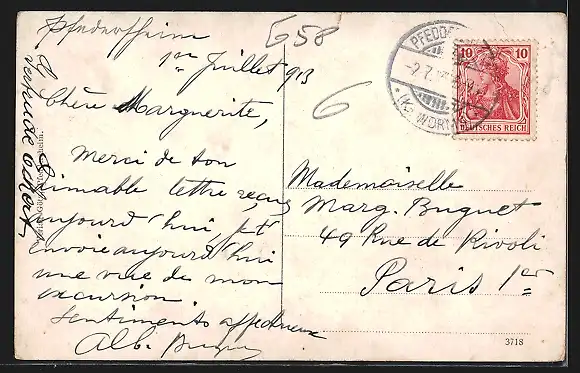 Pfeddersheim
G58
1er Juillet 913
Chère Marguerite,
Merci de ton
aimable lettre reçue
aujourd'hui, je t'
envoie aujourd'hui
une vue de mon
excursion
Sentiments affectueux
Alb.
6
PFEDDE
10 10
DEUTSCHES REICH
(Kr. WORM
Mademoiselle
Marg. Buguet
49 Rue de Rivoli
Paris 1er
3718